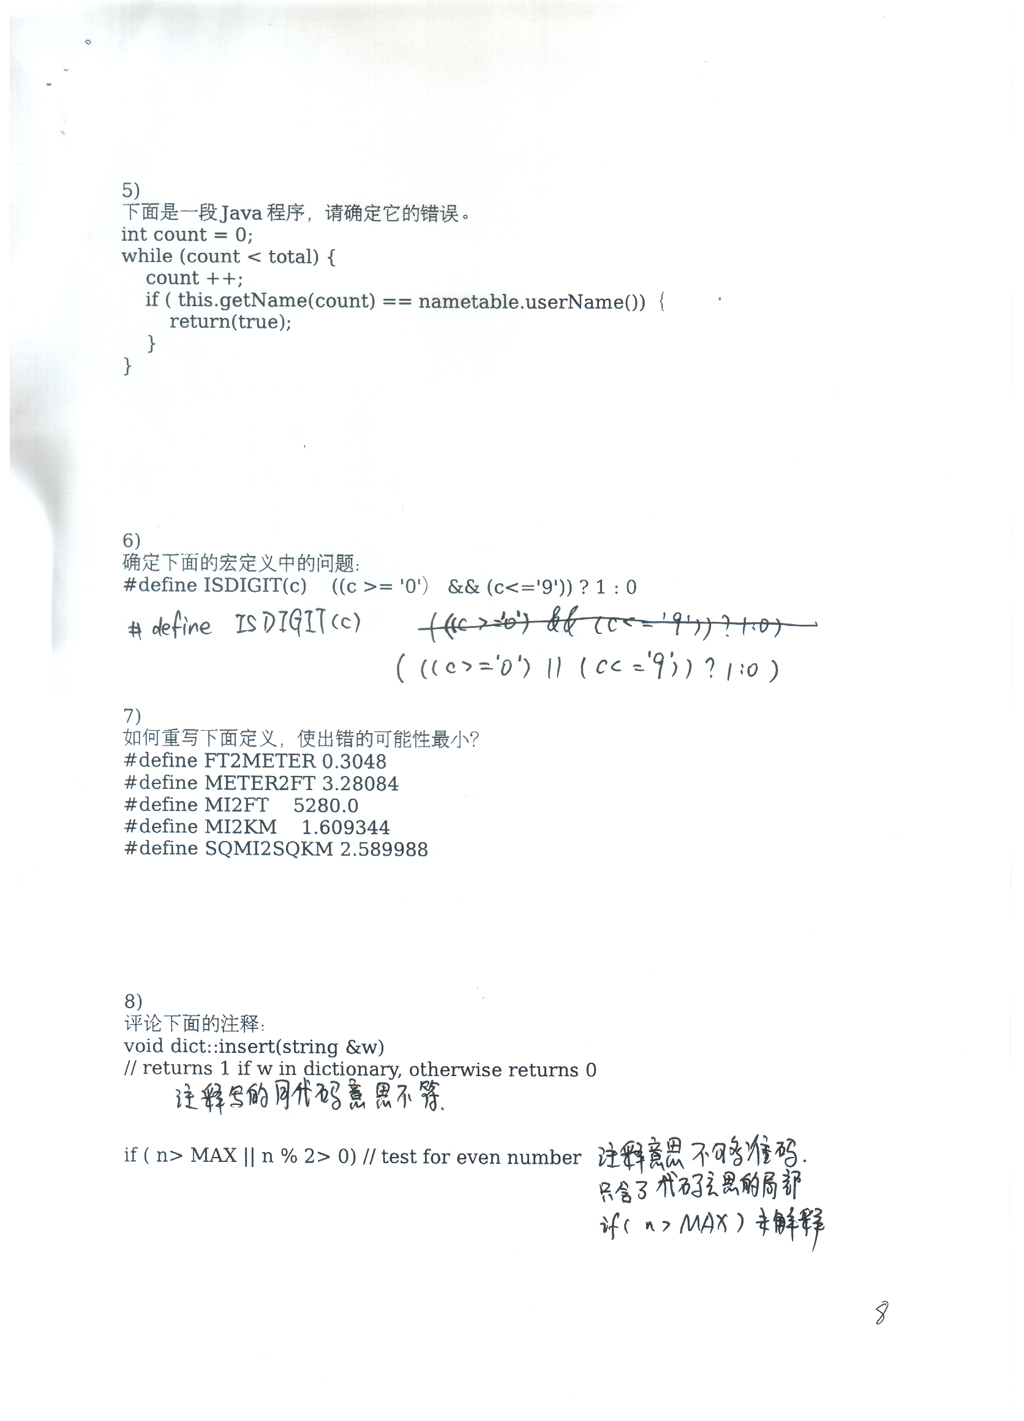 5)
下面是一段Java 程序，请确定它的错误。
int count = 0;
while (count < total) {
count ++;
if ( this.getName(count) == nametable.userName()) {
return(true);
}
}
6)
确定下面的宏定义中的问题:
#define ISDIGIT(c) ((c >= '0') && (c<='9')) ? 1 : 0
# define ISDIGIT(c) (((c >='0') && (c<= '9')) ? 1:0)
(((c>='0') || (c<='9')) ? 1:0)
7)
如何重写下面定义，使出错的可能性最小?
#define FT2METER 0.3048
#define METER2FT 3.28084
#define MI2FT 5280.0
#define MI2KM 1.609344
#define SQMI2SQKM 2.589988
8)
评论下面的注释:
void dict::insert(string &w)
// returns 1 if w in dictionary, otherwise returns 0
注释写的同代码意思不符.
if ( n> MAX || n % 2> 0) // test for even number 注释意思不够准确.
只含了代码意思的局部
if( n > MAX ) 未解释
8